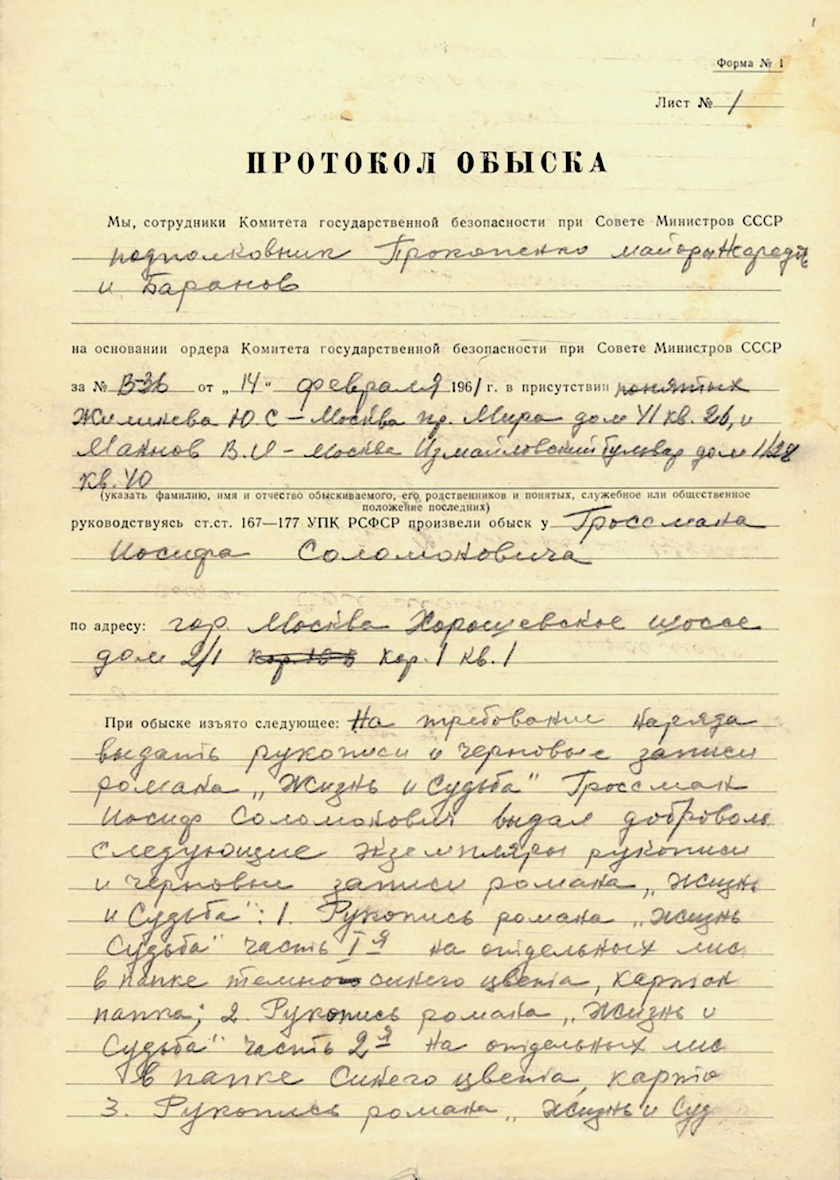 Форма № 1
Лист № 1
ПРОТОКОЛ ОБЫСКА
Мы, сотрудники Комитета государственной безопасности при Совете Министров СССР
подполковник Прокопенко майоры
и Баранов
на основании ордера Комитета государственной безопасности при Совете Министров СССР
за № В-36 от „14" февраля 1961 г. в присутствии понятых
Ю. С – Москва пр. Мира дом VI кв. 26, и
В. И – Москва Измайловский бульвар дом 1/28
кв. 40
(указать фамилию, имя и отчество обыскиваемого, его родственников и понятых, служебное или общественное
положение последних)
руководствуясь ст.ст. 167—177 УПК РСФСР произвели обыск у Гроссмана
Иосифа Соломоновича
по адресу: гор. Москва Хорошевское шоссе
дом 2/1 кор. 1 кв. 1
При обыске изъято следующее: На требование наряда
выдать рукописи и черновые записи
романа „Жизнь и Судьба" Гроссман
Иосиф Соломонович выдал доброволь
следующие экземпляры рукописи
и черновые записи романа „Жизнь
и Судьба": 1. Рукопись романа „Жизнь
Судьба" часть I я на отдельных лис
в папке темно синего цвета, картон
папка; 2. Рукопись романа „Жизнь и
Судьба" часть 2 я на отдельных лис
в папке синего цвета, карто
3. Рукопись романа „Жизнь и Суд